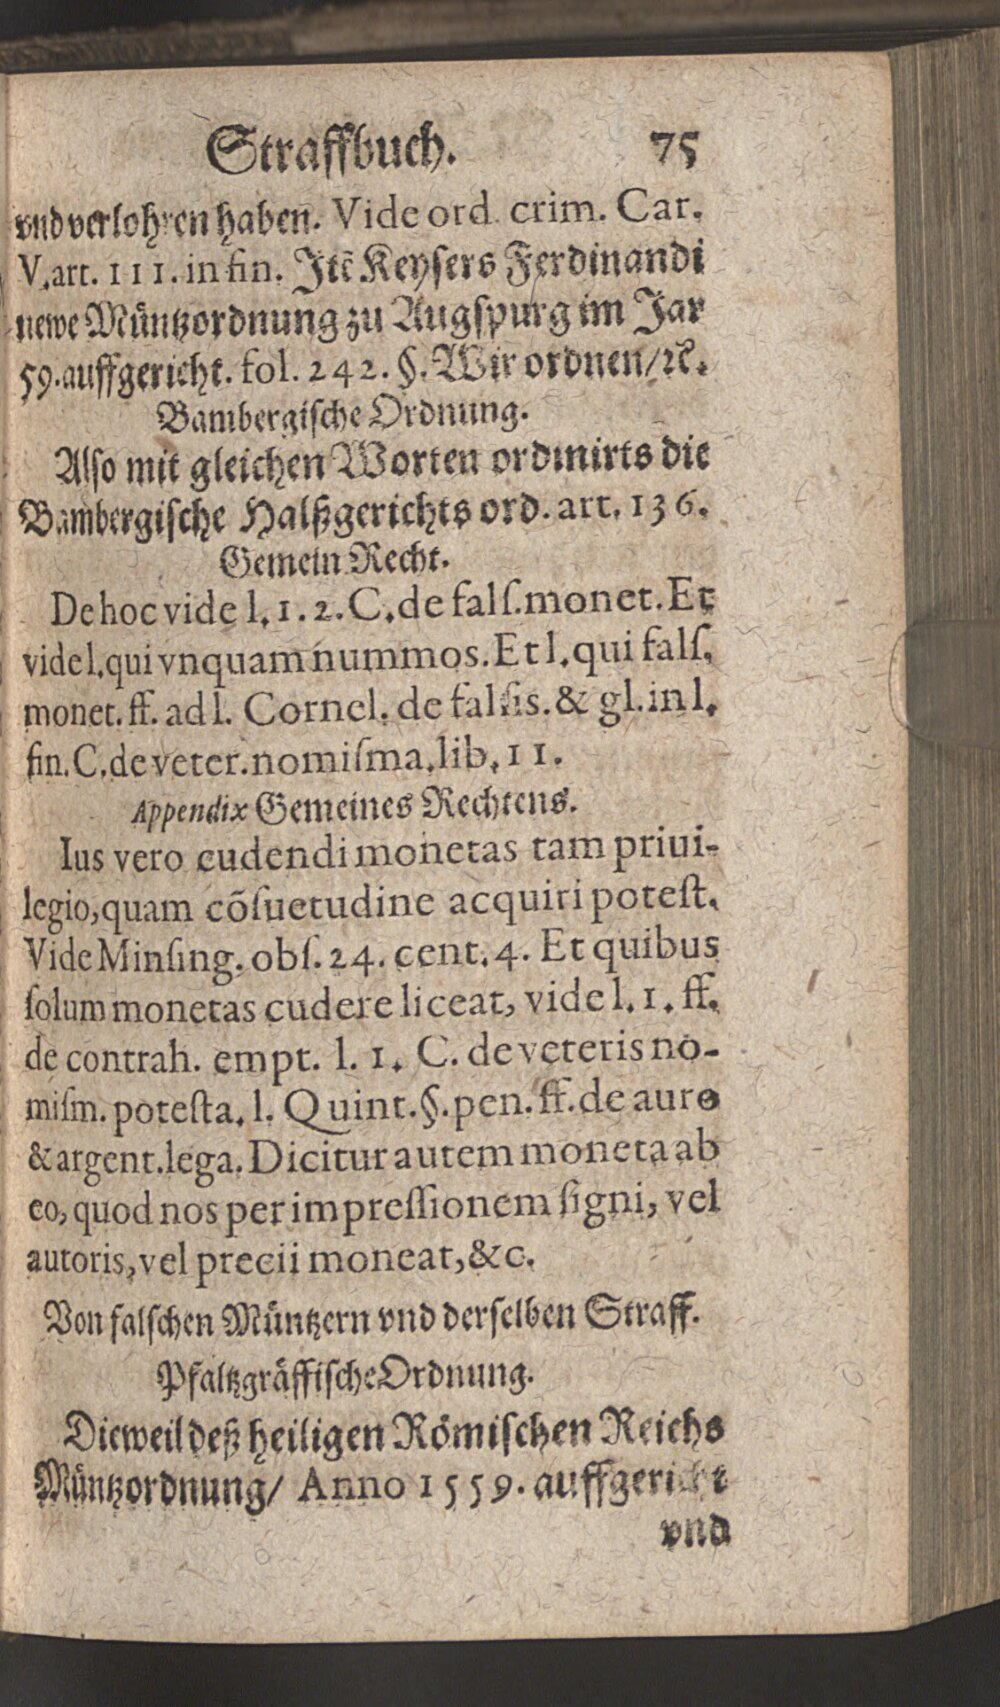 Straffbuch. 75
vnd verlohren haben. Vide ord. crim. Car.
V. art. 111. in fin. Itē Keysers Ferdinandi
newe Müntzordnung zu Augspurg im Jar
59. auffgericht. fol. 242. §. Wir ordnen/ ꝛc.
Bambergische Ordnung.
Also mit gleichen Worten ordinirts die
Bambergische Halßgerichts ord. art. 136.
Gemein Recht.
De hoc vide l. 1. 2. C. de falſ. monet. Et
vide l. qui vnquam nummos. Et l. qui falſ.
monet. ff. ad l. Cornel. de falſis. & gl. in l.
fin. C. de veter. nomiſma. lib. 11.
Appendix Gemeines Rechtens.
Ius vero cudendi monetas tam priui-
legio, quam cõſuetudine acquiri poteſt.
Vide Minſing. obſ. 24. cent. 4. Et quibus
ſolum monetas cudere liceat, vide l. 1. ff.
de contrah. empt. l. 1. C. de veteris no-
miſm. poteſta. l. Quint. §. pen. ff. de auro
& argent. lega. Dicitur autem moneta ab
eo, quod nos per impreſſionem ſigni, vel
autoris, vel precii moneat, &c.
Von falschen Müntzern vnd derselben Straff.
Pfaltzgräffische Ordnung.
Dieweil deß heiligen Römischen Reichs
Müntzordnung/ Anno 1559. auffgericht
vnd